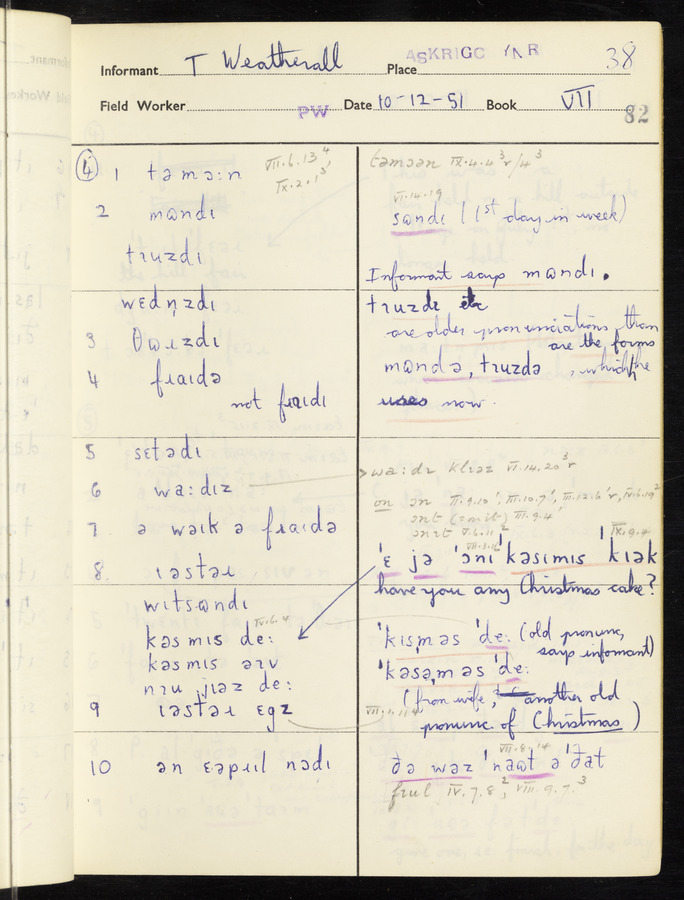 Informant T Weatherall Place ASKRIGG YNR 38
Field Worker PW Date 10-12-51 Book VII 82
④ 1 təmɔ:n VII.6.13⁴
IX.2.1³
2 mɷndɩ
tɹuzdɩ
wɛdn̩zdɩ
3 θɷɪzdɩ
4 fɹaɩdə
not fɹaɩdɩ
5 sɛtədɩ
6 wa:dɪz
7 ə wəɪk ə fɹaɩdə
8 ɪəstəɹ
wɪtsɷndɩ
kəsmɪs de: IV.6.4
kəsmɪs
de:
9 ɪəstəɹ ɛgz
10 ən nɔdɩ
təmɔən IX.4.4³r/4³
VI.14.19
sɷndɩ (1st day in week)
Informant says mɷndɩ.
tɹuzdɩ etc
are older pronunciations than
are the forms
mɷndə, tɹuzdə, which he
uses now.
wa:dɪ klɪəz VI.14.20³r
on ɔn II.9.10', III.10.7',
III.9.4'
V.6.11²
VII.3.16
IX.9.4
'ɛ jə 'ɔnɩ 'kəsɩmɪs 'kɪək
have you any Christmas cake?
'kɪsməs 'de: (old pronunc,
says informant)
'kəsəməs 'de:
(from wife, another old
pronunc. of Christmas)
VII.8.14
ðə wəz 'naɷt ə 'ðat
IV.7.8², VIII.9.7.³